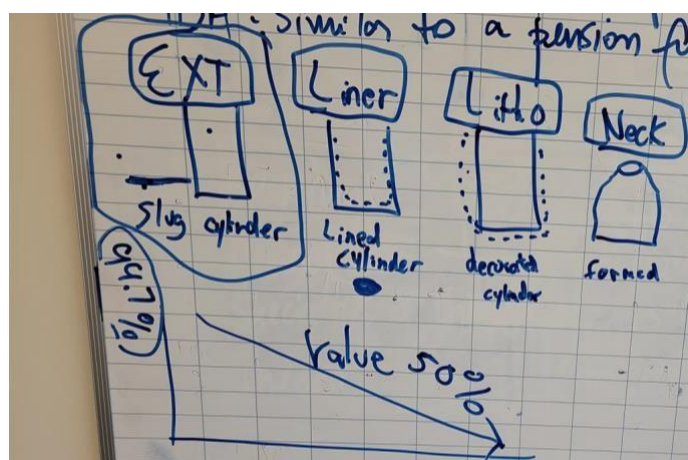 IDA: similar to a tension f
EXT
Liner
Litho
Neck
Slug cylinder
Lined
cylinder
decorated
cylinder
formed
99.7%
Value 50%